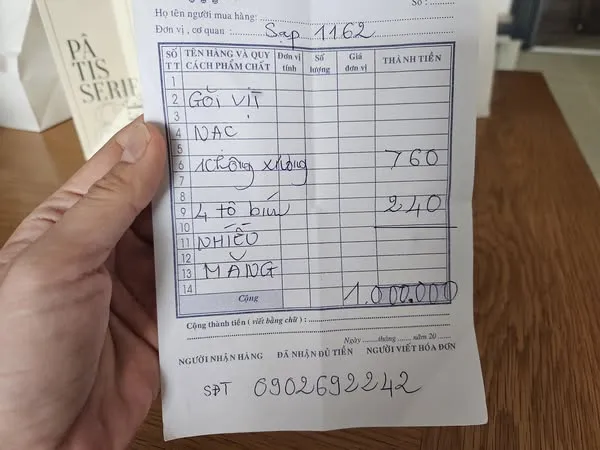 PÂ
TIS
SERIE
Số :
Họ tên người mua hàng:
Đơn vị, cơ quan : Sạp 1162
SỐ TT TÊN HÀNG VÀ QUY CÁCH PHẨM CHẤT Đơn vị tính Số lượng Giá đơn vị THÀNH TIỀN
1
2 GỎI VỊT
3
4 NẠC
5
6 1 không xương 760
7
8
9 4 tô bún 240
10
11 NHIỀU
12
13 MĂNG
14
Cộng 1.000.000
Cộng thành tiền ( viết bằng chữ ) :
Ngày ...... tháng ...... năm 20 ...
NGƯỜI NHẬN HÀNG ĐÃ NHẬN ĐỦ TIỀN NGƯỜI VIẾT HÓA ĐƠN
SĐT 0902692242